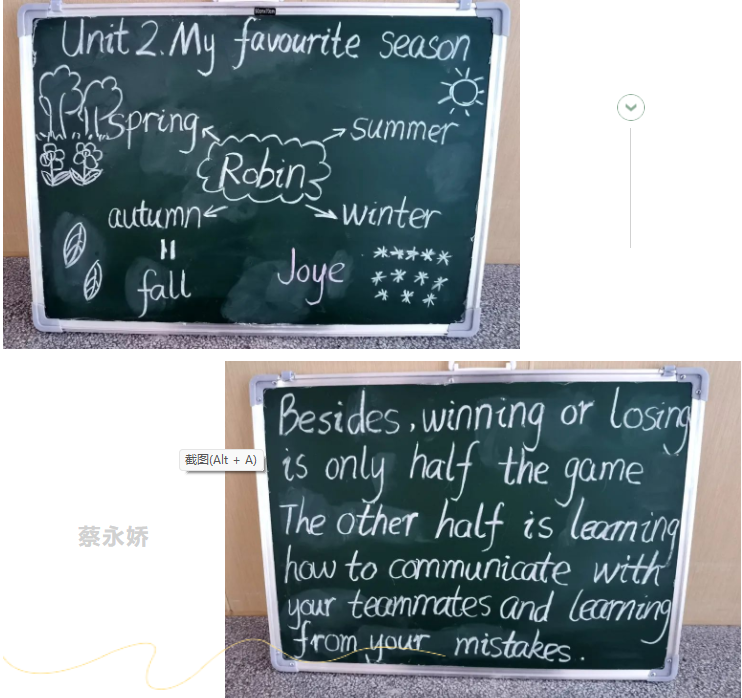 Unit 2. My favourite season
spring
summer
Robin
autumn
winter
fall
Joye
Besides, winning or losing
is only half the game
The other half is learning
how to communicate with
your teammates and learning
from your mistakes.
截图(Alt + A)
蔡永娇